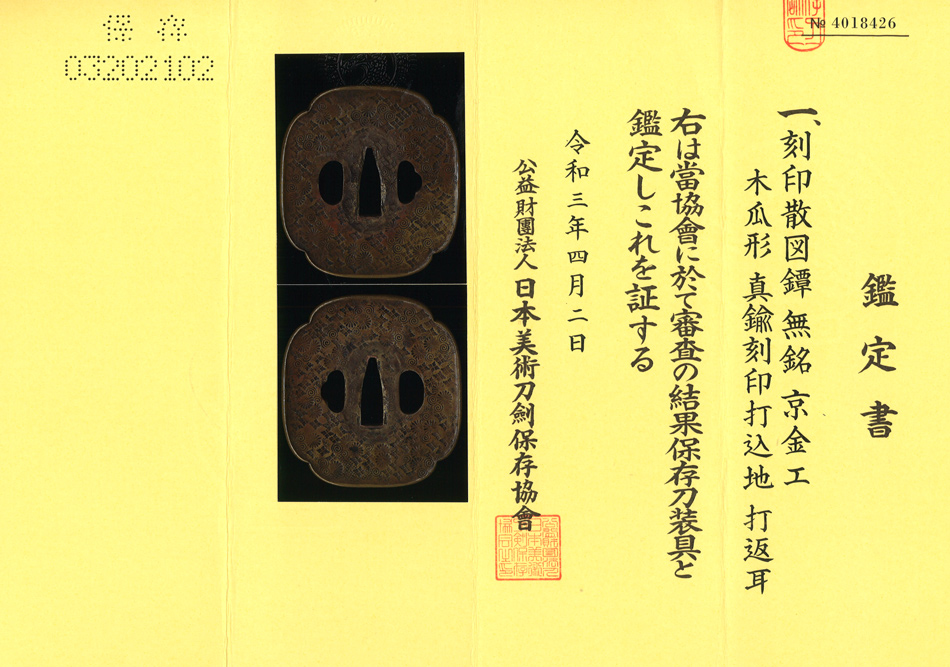 № 4018426
鑑定書
一、刻印散図鐔 無銘 京金工
木瓜形 真鍮刻印打込地 打返耳
右は當協會に於て審査の結果保存刀装具と
鑑定しこれを証する
令和三年四月二日
公益財團法人 日本美術刀劍保存協會
保存
03202102